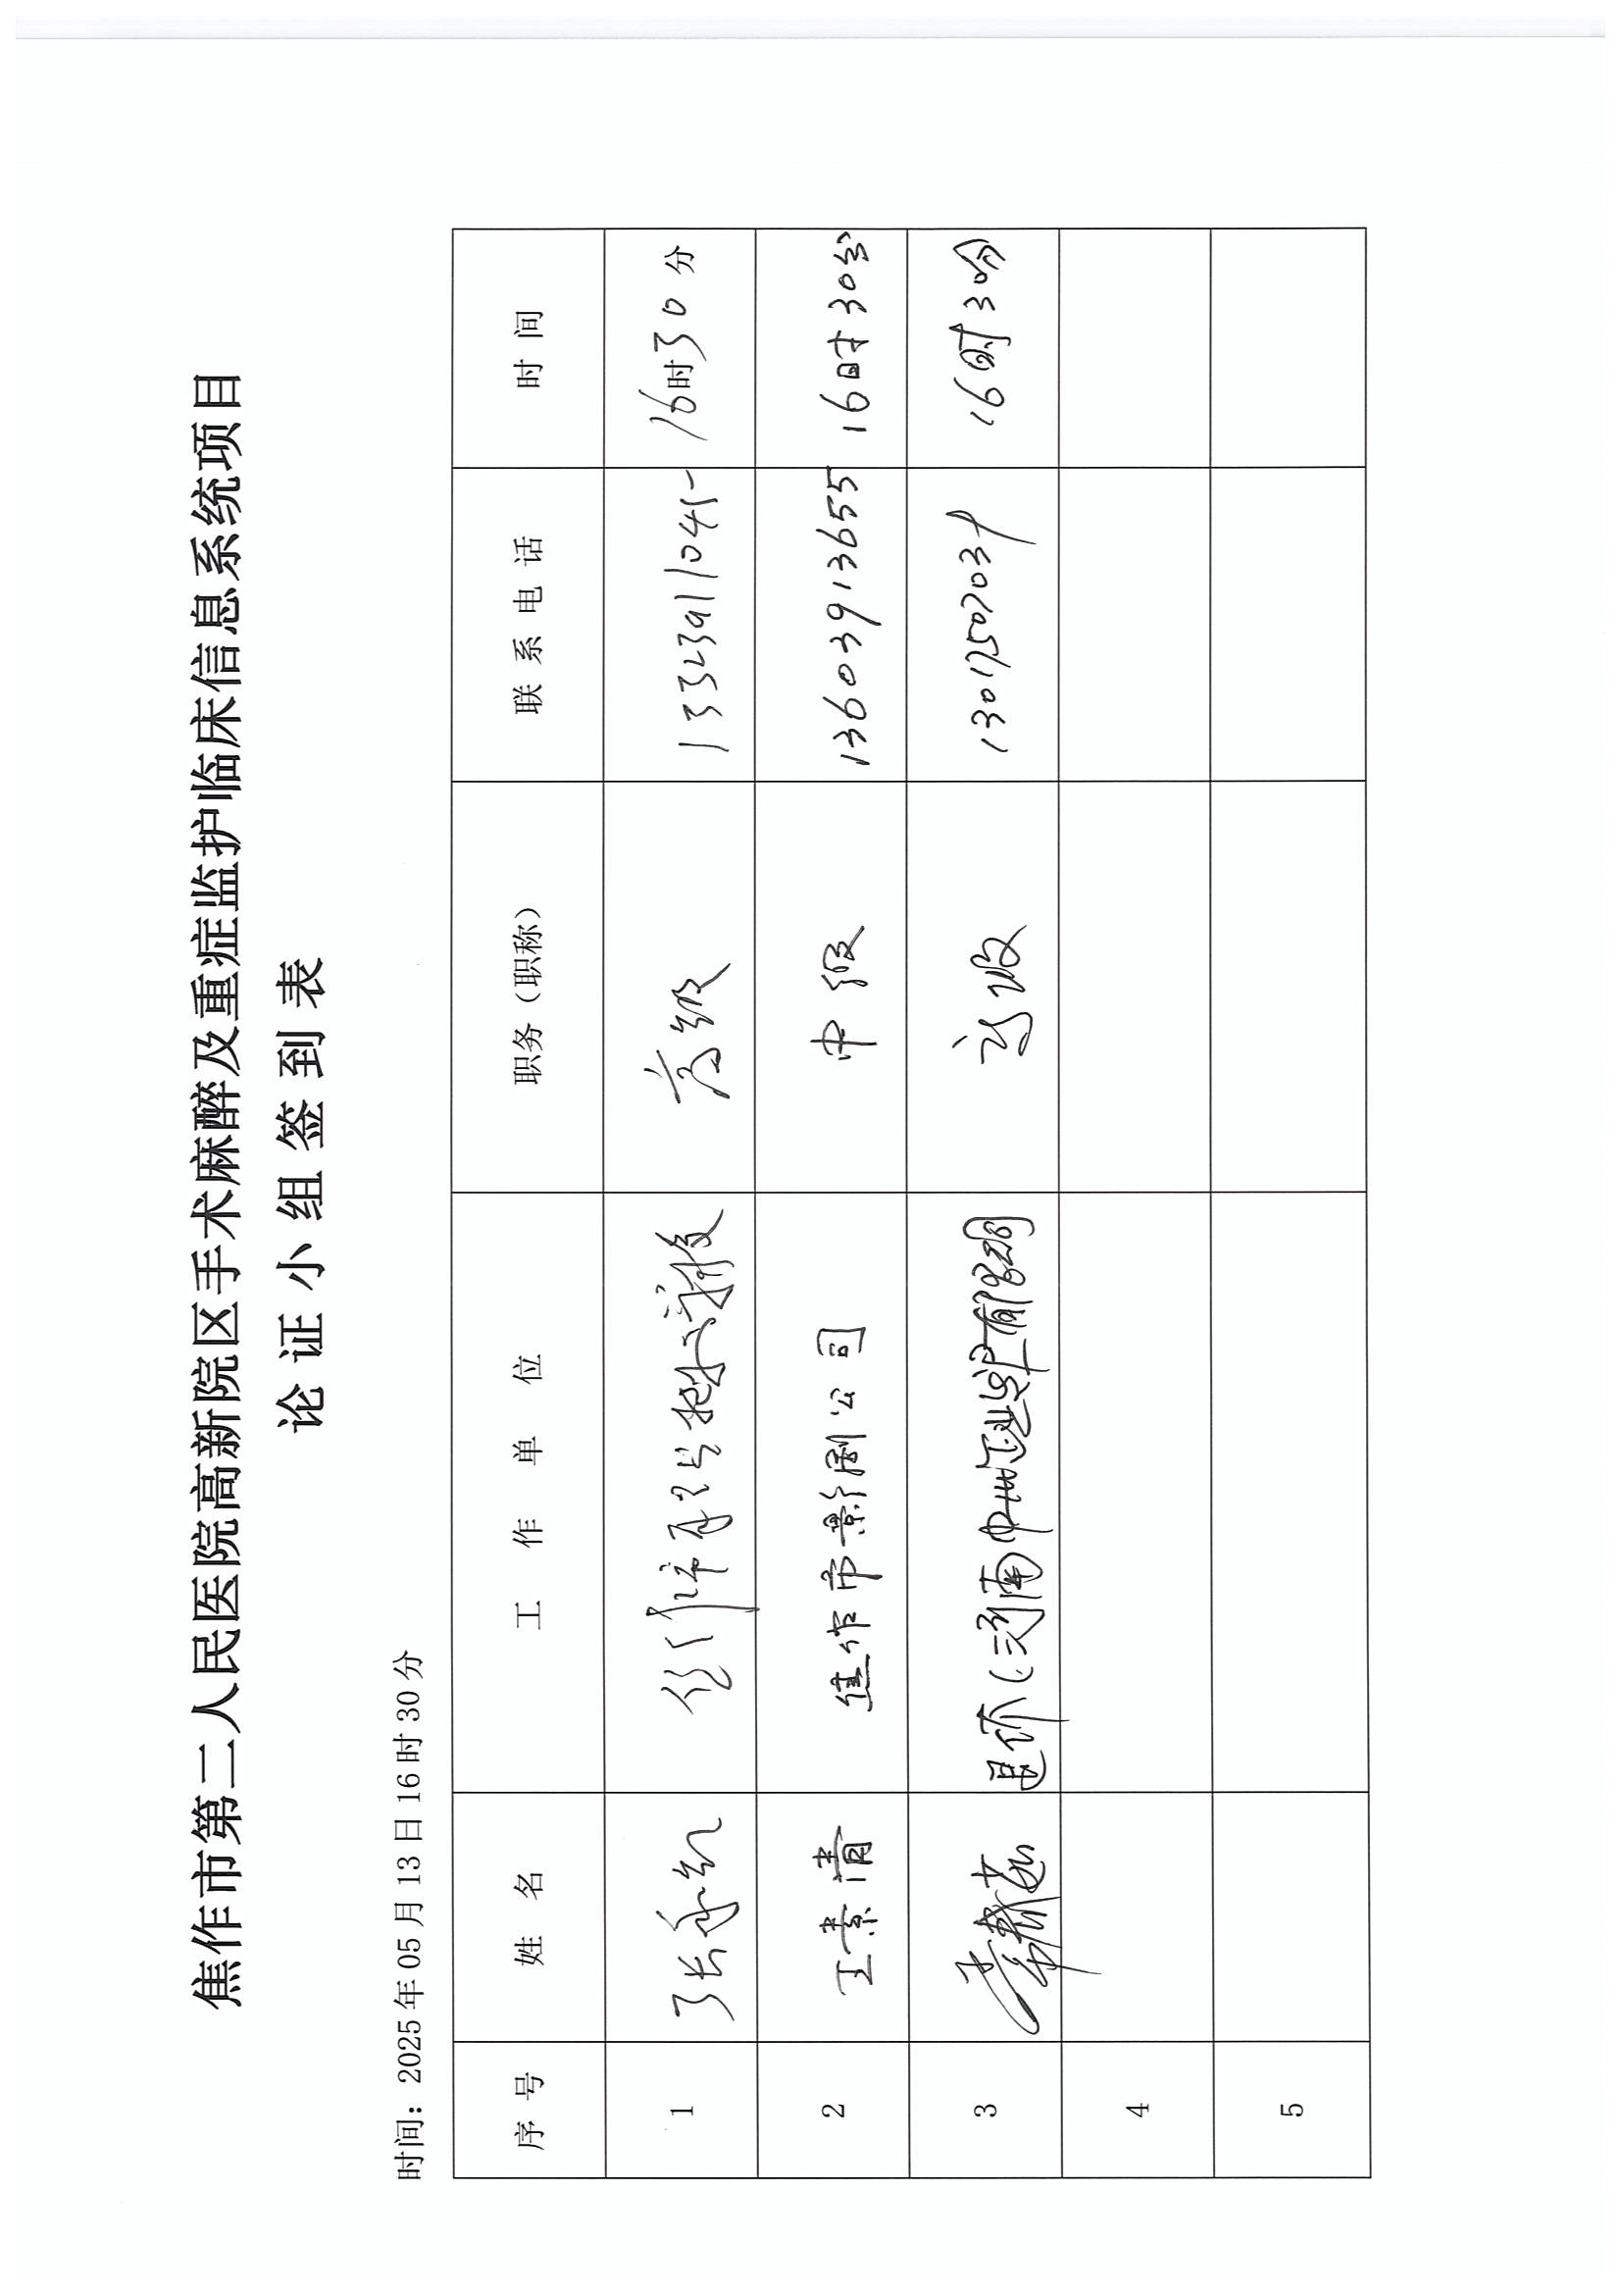 焦作市第二人民医院高新院区手术麻醉及重症监护临床信息系统项目
论证小组签到表
时间：2025年05月13日16时30分
序号 姓名 工作单位 职务（职称） 联系电话 时间
1 张 高级 13323911045 16时30分
2 王素清 焦作市影剧公司 中级 13603913655 16时30分
3 退休（河南中州 高级 16时30分
4
5